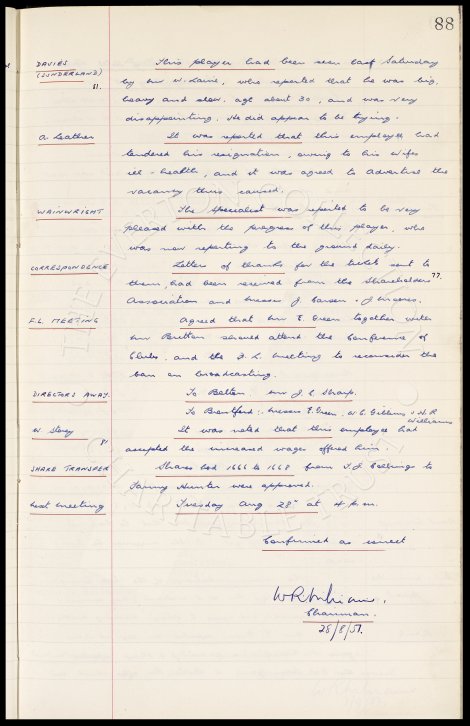 88
DAVIES This player had been seen last Saturday
(SUNDERLAND) by Mr W. Laine, who reported that he was big,
81. heavy and slow, age about 30, and was very
disappointing. He did appear to be trying.
A. Leather It was reported that this employee had
tendered his resignation, owing to his wifes
ill-health, and it was agreed to advertise the
vacancy thus caused.
WAINWRIGHT The Specialist was reported to be very
pleased with the progress of this player, who
was now reporting to the ground daily.
CORRESPONDENCE Letters of thanks for the tickets sent to
them, had been received from the Shareholders 77.
Association and Messrs J
F.L. MEETING Agreed that Mr E. Green together with
Mr Britton should attend the Conference of
Clubs, and the F.L. Meeting to reconsider the
ban on broadcasting.
DIRECTORS AWAY. To Bolton: Mr J.C. Sharp.
To Brentford: Messrs E. Green, W.C. Gibbins & W.R. Williams
W Storey It was noted that this employee had
81 accepted the increased wages offered him.
SHARE TRANSFER Shares Nos 1666 to 1668 from to
Hunter were approved.
Next meeting Tuesday Aug 28th at 4 p.m.
Confirmed as correct
W R Williams.
Chairman.
28/8/51.
THE EVERTON COLLECTION
CHARITABLE TRUST